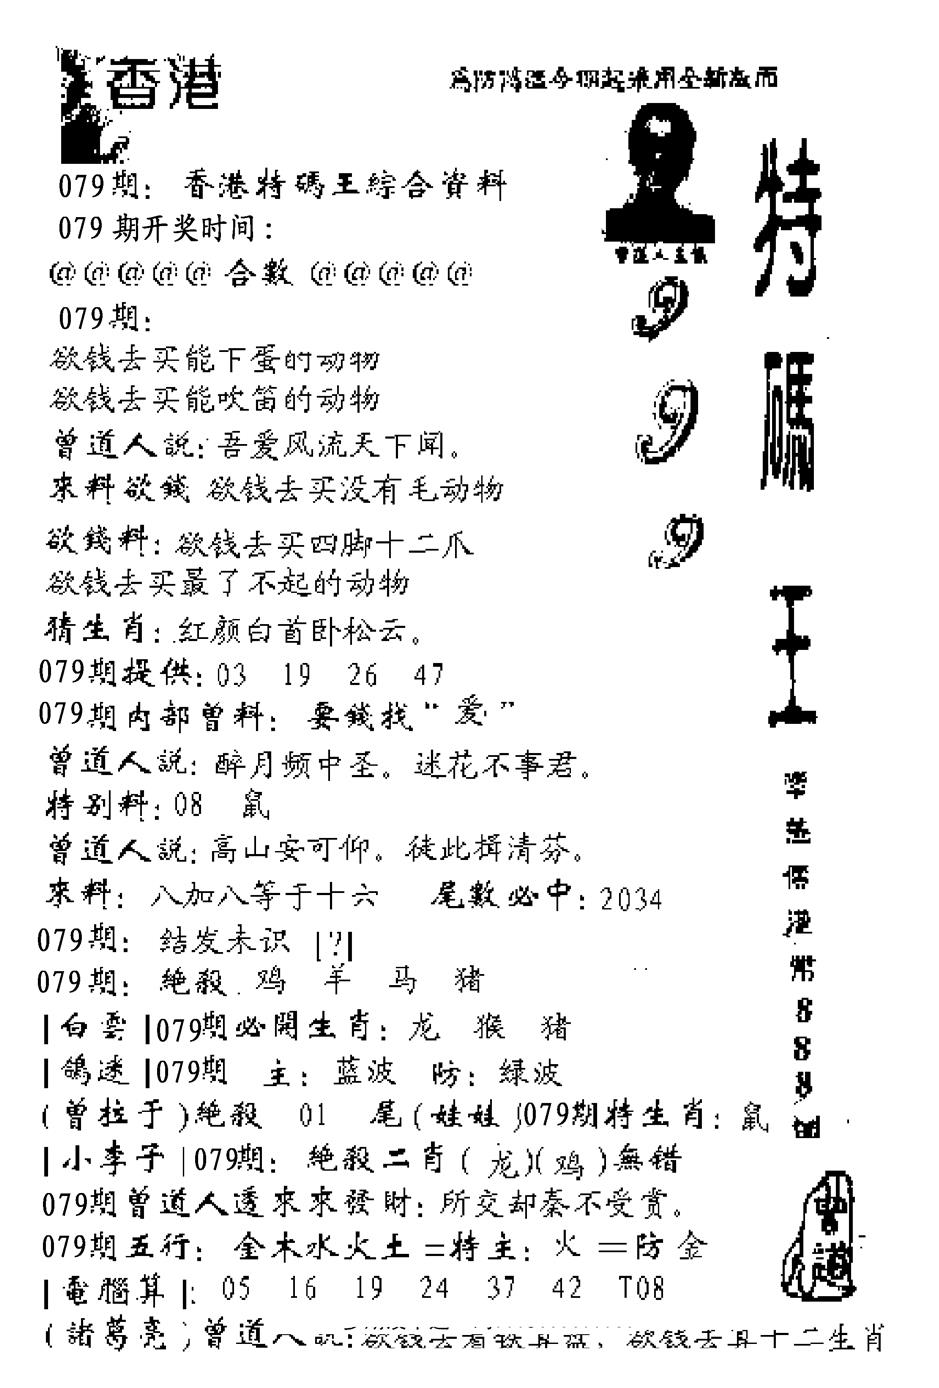 香港
為防
079期：香港特碼王綜合資料
079期开奖时间：
@@@@@合數@@@@@
079期：
欲钱去买能下蛋的动物
欲钱去买能吹笛的动物
曾道人説：吾爱风流天下闻。
來料欲錢 欲钱去买没有毛动物
欲錢料：欲钱去买四脚十二爪
欲钱去买最了不起的动物
猜生肖：红颜白首卧松云。
079期提供：03 19 26 47
079期内部曾料：要錢找“爱”
曾道人説：醉月频中圣。迷花不事君。
特别料：08 鼠
曾道人説：高山安可仰。徒此揖清芬。
來料：八加八等于十六 尾數必中：2034
079期：结发未识 [?]
079期：絶殺 鸡 羊 马 猪
|白雲|079期必開生肖：龙 猴 猪
|鴿迷|079期 主：蓝波 防：绿波
(曾拉于)絶殺 01 尾(娃娃)079期特生肖：鼠
|小李子|079期：絶殺二肖(龙)(鸡)無错
079期曾道人透來來發財：所交却秦不受赏。
079期五行：金木水火土=特主：火=防金
|電腦算|：05 16 19 24 37 42 T08
(諸葛亮)曾道人説：欲钱去看 欲钱去 十二生肖
曾道人
9
9
9
特碼王
港幣888
曾道